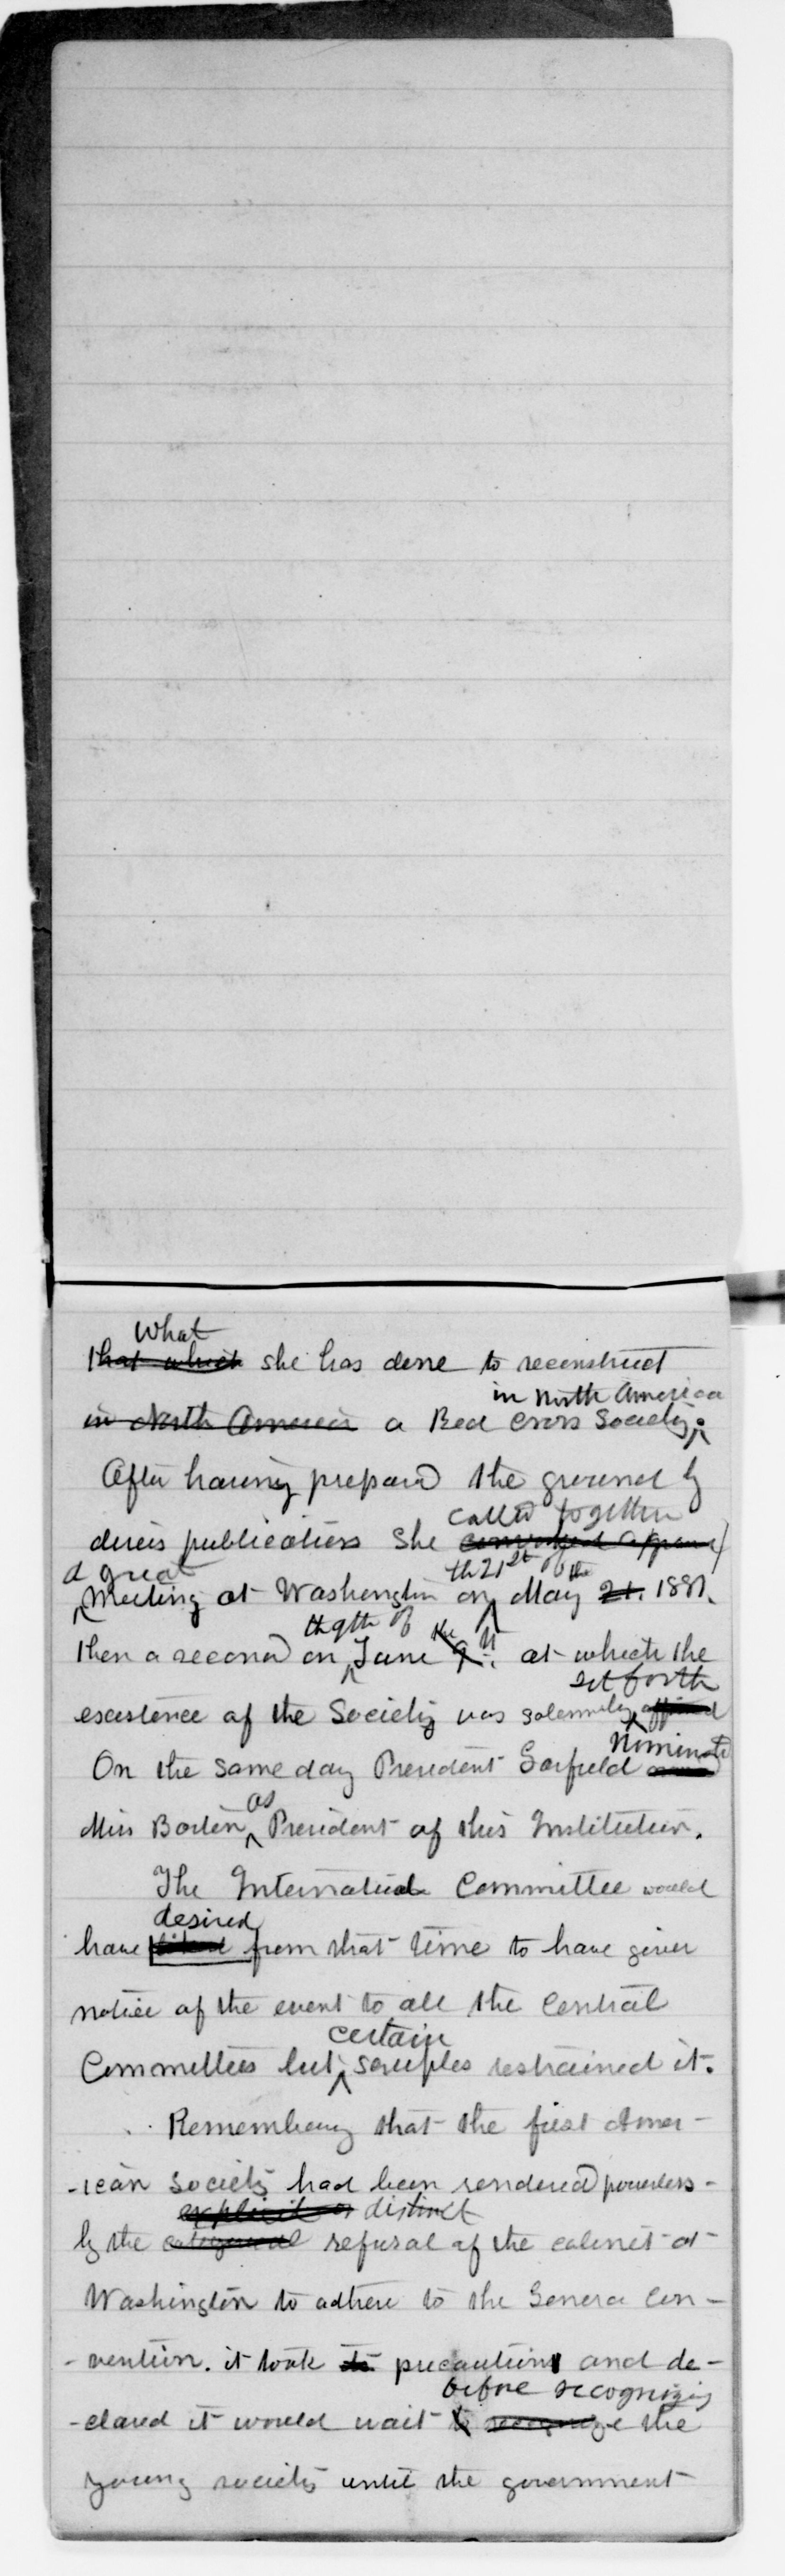 What
that which she has done to reconstruct
in North America
in North America a Red Cross Society.
After having prepared the ground by
called together
divers publications she convoked a grand
a great th 21st of the
Meeting at Washington on May 21. 1881.
the 9th of the
then a second on June 9th. at which the
set forth
existence of the Society was solemnly affirmed
nominated
On the same day President Garfield
as
Miss Barton President of this Institution.
The International Committee would
desired
have liked from that time to have given
notice of the event to all the Central
certain
Committees but scruples restrained it.
Remembering that the first Amer-
-ican society had been rendered powerless-
explicit or distinct
by the categorical refusal of the cabinet at
Washington to adhere to the Geneva Con-
-vention. it took its precautions and de-
before recognizing
-clared it would wait to recognize the
young society until the government